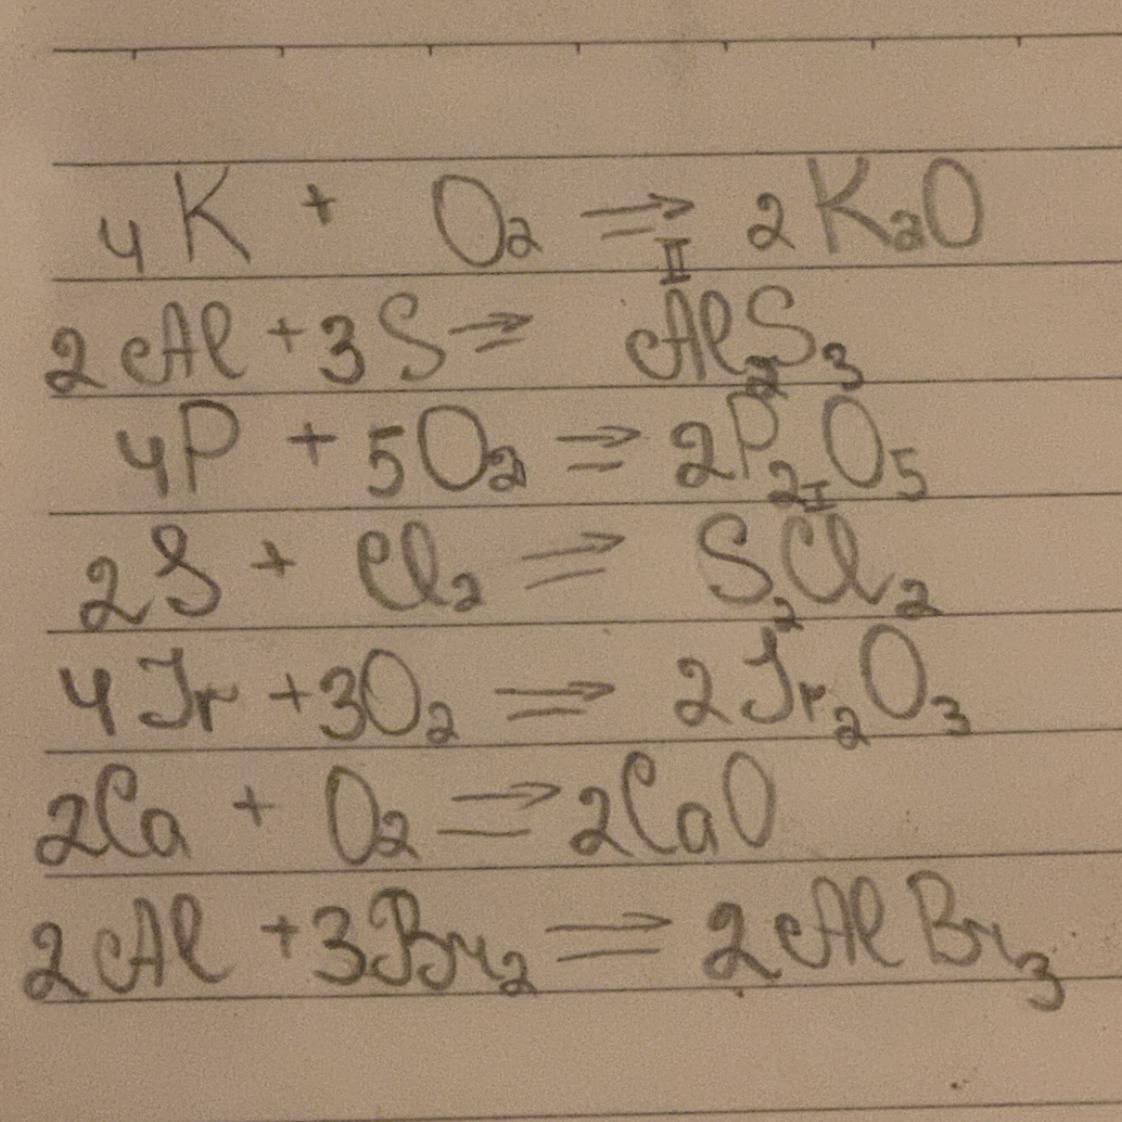 4K + O₂ ⇒ 2K₂O
2Al + 3S ⇒ Al₂S₃ II
4P + 5O₂ ⇒ 2P₂O₅
2S + Cl₂ ⇒ S₂Cl₂ I
4Ir + 3O₂ ⇒ 2Ir₂O₃
2Ca + O₂ ⇒ 2CaO
2Al + 3Br₂ ⇒ 2AlBr₃